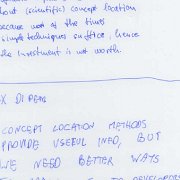 out (scientific) concept location
because most of the times
simple techniques suffice, hence
the investment is not worth.
X DI PENTA
CONCEPT LOCATION METHODS
PROVIDE USEFUL INFO, BUT
WE NEED BETTER WAYS
TO DEVELOPERS